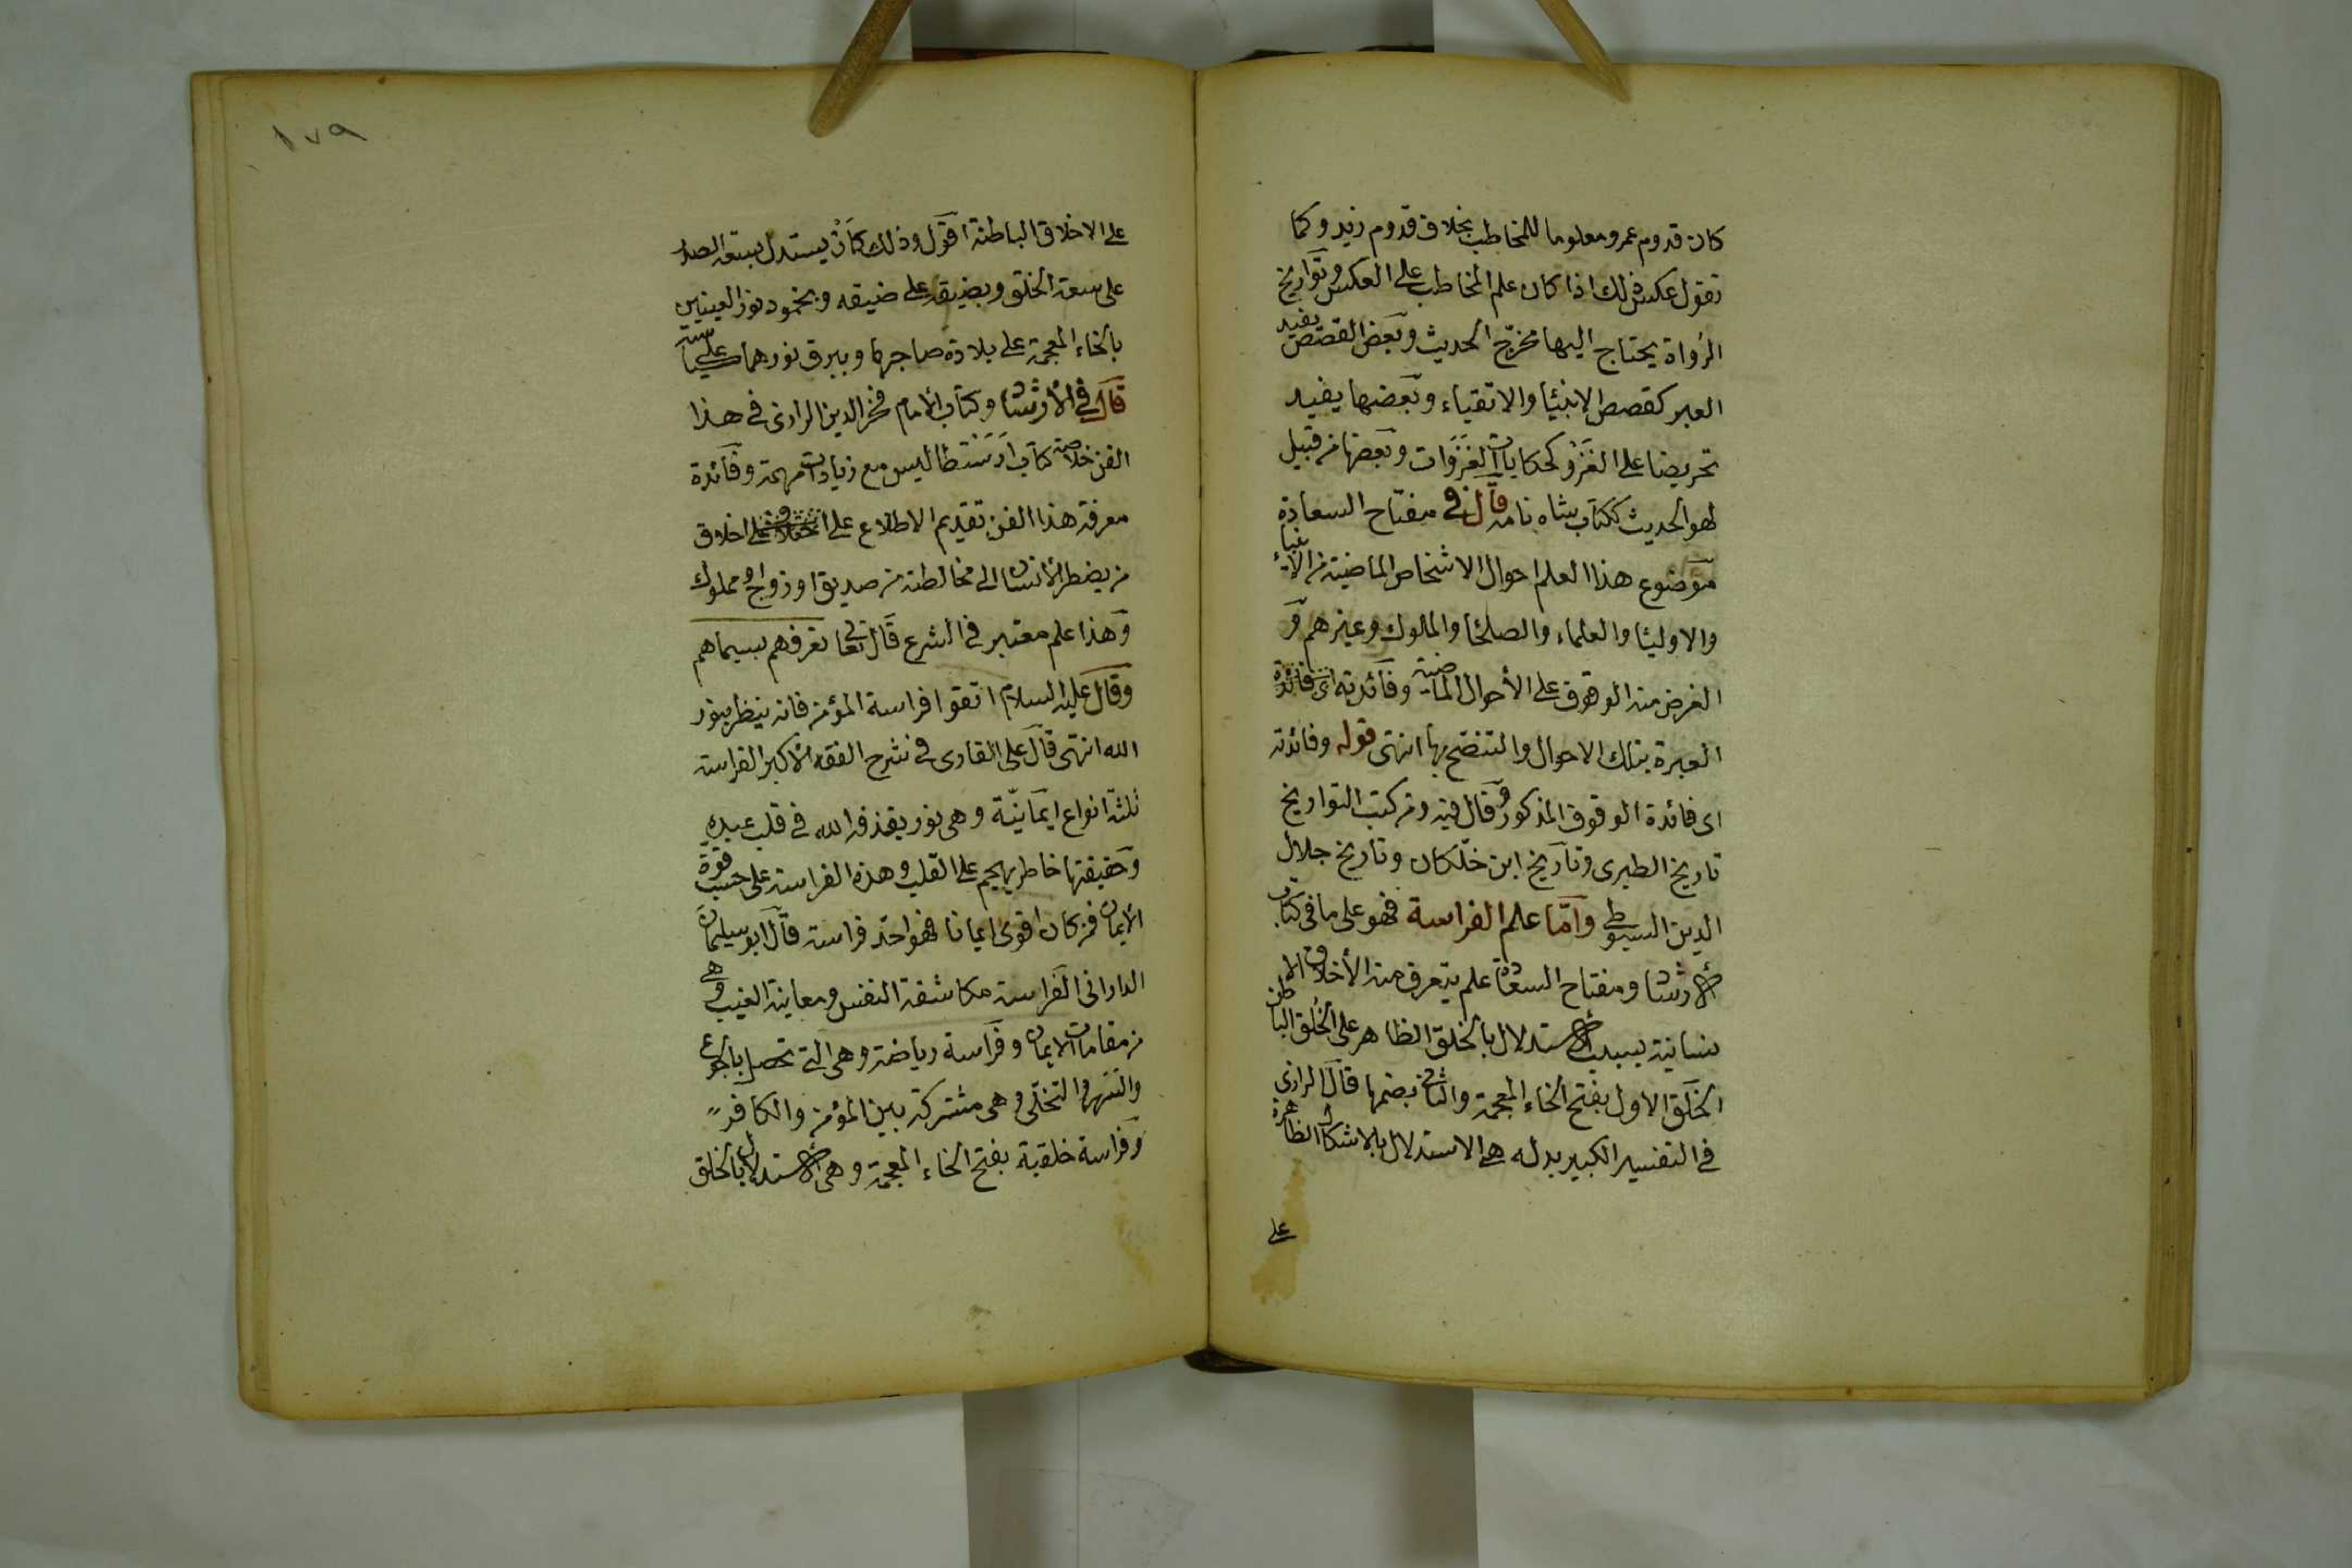 كان قدوم عمرو معلوما للمخاطب بخلاف قدوم زيد وكما
تقول عكس ذلك اذا كان علم المخاطب على العكس وتواريخ
الرواة يحتاج اليها مخرّج الحديث وبعض القصص يفيد
العبر كقصص الانبيا والاتقياء وبعضها يفيد
تحريضا على الغَزْو كحكايات الغَزَوات وبعضها من قبيل
لهو الحديث ككتاب شاه نامه قال في مفتاح السعادة
موضوع هذا العلم احوال الاشخاص الماضية من الانبياء
والاوليا والعلماء والصلحا والملوك وغيرهم و
الغرض منه الوقوف على الأحوال الماضية وفائدته
العبرة بتلك الاحوال والتنصّح بها انتهى قوله وفائدته
اى فائدة الوقوف المذكور وقال فيه ومن كتب التواريخ
تاريخ الطبرى وتاريخ ابن خلّكان وتاريخ جلال
الدين السيوطى وامّا علم الفراسة فهو على ما فى كتاب
الارشاد ومفتاح السعادة علم يتعرف منه الأخلاق الا
نسانية بسبب الاستدلال بالخلق الظاهر على الخُلق الباطن
الخَلق الاول بفتح الخاء المعجمة والثانى بضمها قال الرازى
فى التفسير الكبير بدله هى الاستدلال بالاشكال الظاهرة
على
١٧٩
على الاخلاق الباطنة اقول وذلك كأن يستدل بسعة الصدر
على سعة الخلق وبضيقه على ضيقه وبخمود نور العينين
بالخاء المعجمة على بلادة صاحبها وببرق نورهما على
قال فى الارشاد وكتاب الامام فخر الدين الرازى فى هذا
الفن خلاصة كتاب ارسطاطاليس مع زيادات مهمة وفائدة
معرفة هذا الفن تقديم الاطلاع على اخلاق
من يضطر الانسان الى مخالطته من صديق او زواج او مملوك
وهذا علم معتبر فى الشرع قال تعالى تعرفهم بسيماهم
وقال عليه السلام اتقوا فراسة المؤمن فانه ينظر بنور
الله انتهى قال على القارى فى شرح الفقه الاكبر الفراسة
ثلثة انواع ايمانيّة وهى نور يقذفه الله فى قلب عبده
وحقيقتها خاطر يهجم على القلب وهذه الفراسة على حسب قوة
الايمان فمن كان اقوى ايمانا فهو احدّ فراسة قال ابو سليمان
الدارانى الفراسة مكاشفة النفس ومعاينة الغيب وهى
من مقامات الايمان وفراسة رياضة وهى التى تحصل بالجوع
والسّهر والتخلّى وهى مشتركة بين المؤمن والكافر
وفراسة خلقية بفتح الخاء المعجمة وهى الاستدلال بالخلق